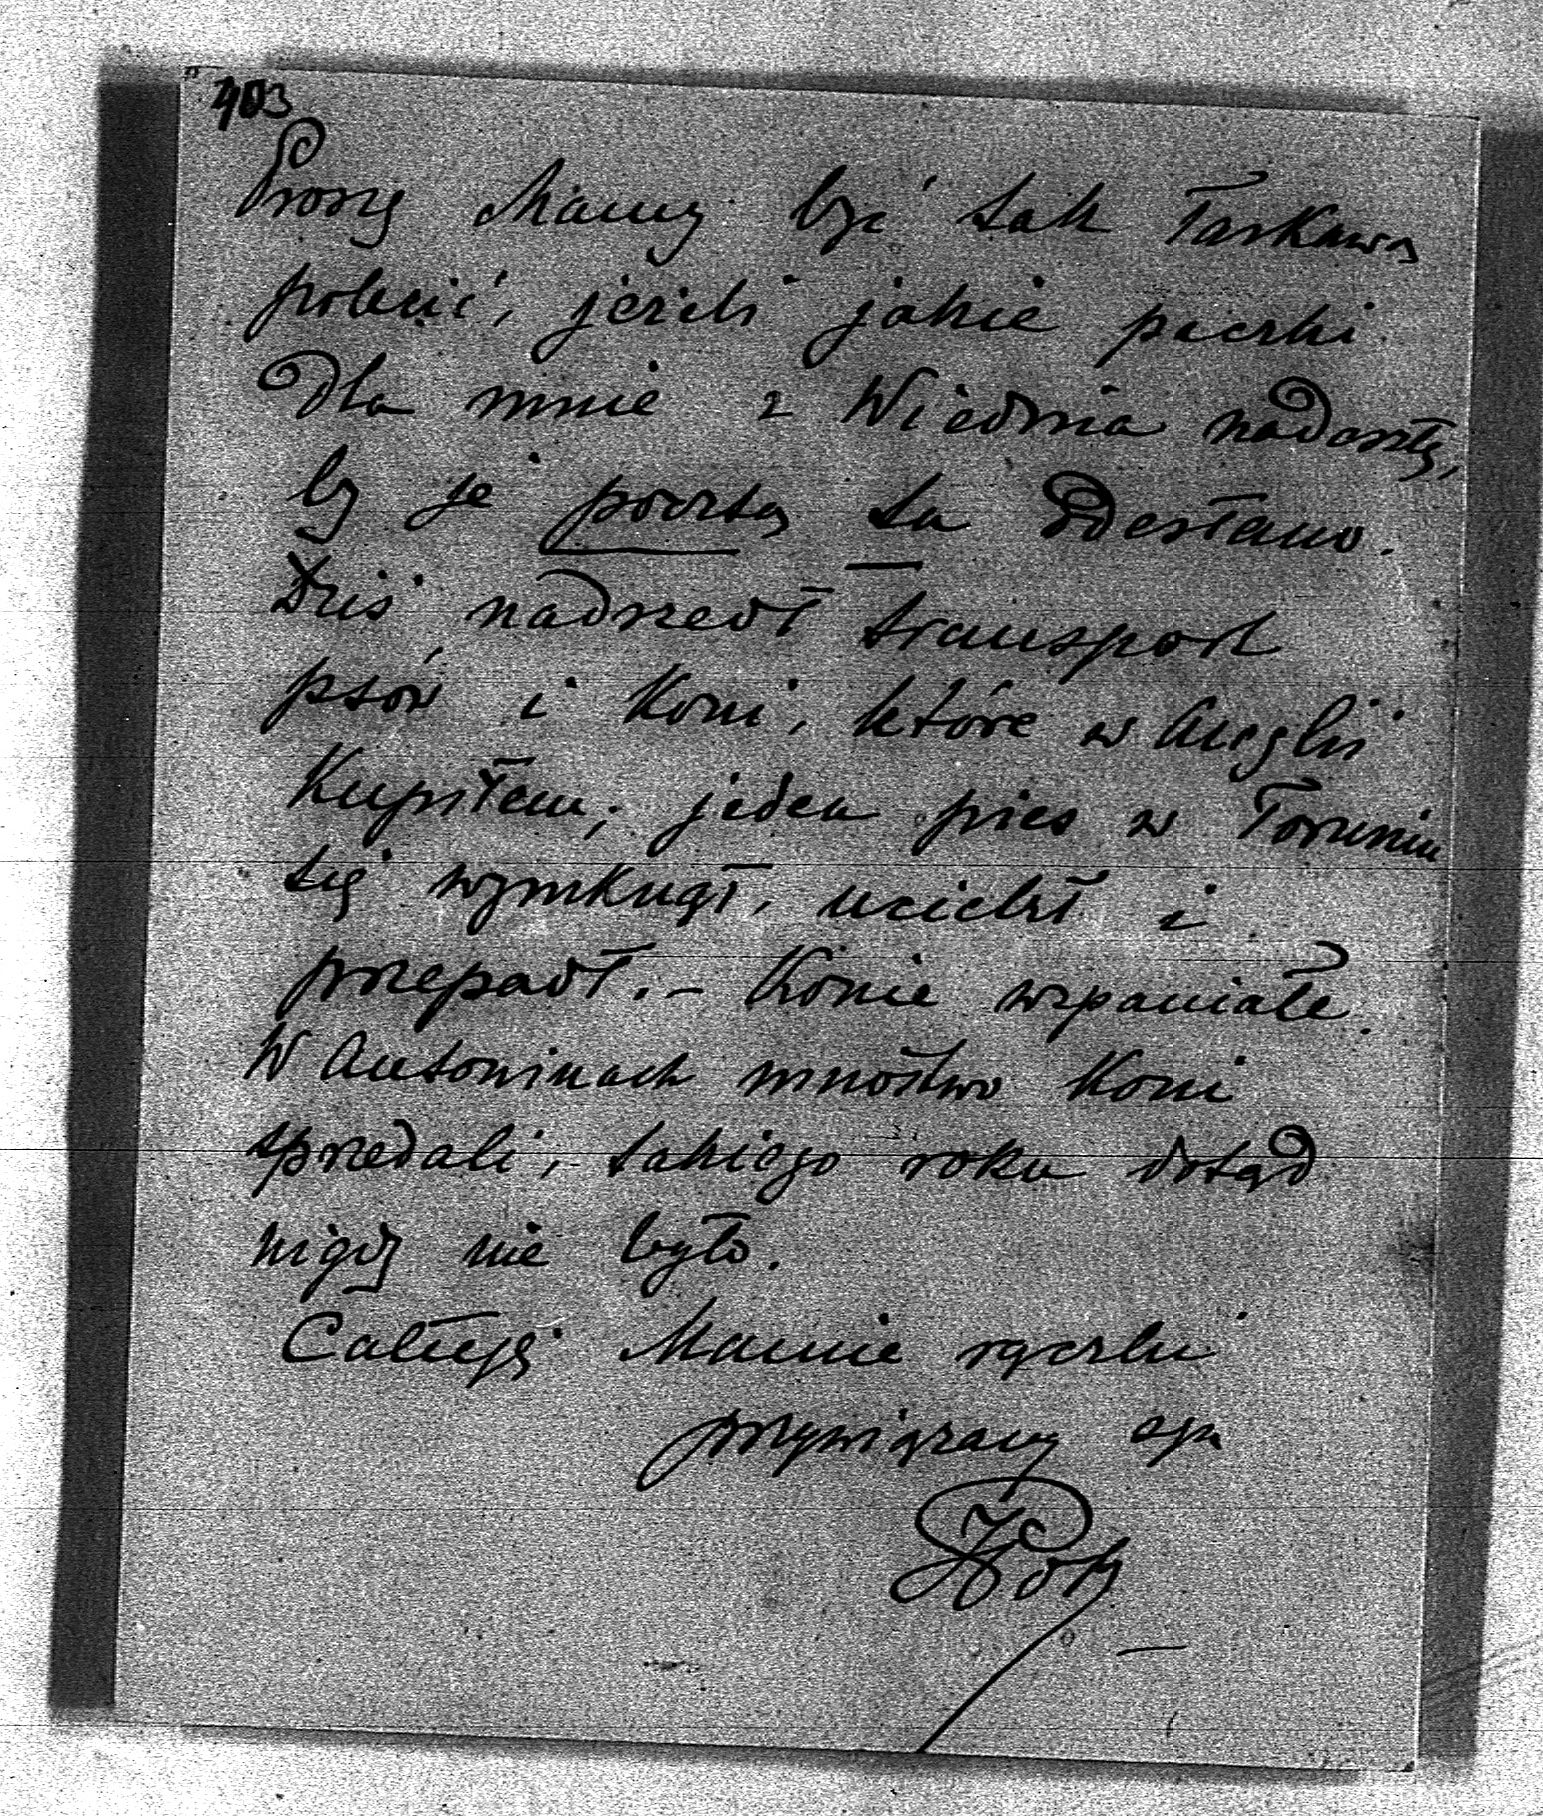 403
Proszę Mamy być tak łaskawą
polecić, jeżeli jakie paczki
dla mnie z Wiednia nadeszły,
by je pocztą tu odesłano.
Dziś nadszedł transport
psów i koni, które w Anglii
kupiłem; jeden pies w Toruniu
się wymknął, uciekł i
przepadł. – Konie wspaniałe.
W Antoninach mnóstwo koni
sprzedali, takiego roku dotąd
nigdy nie było.
Całuję Mamie rączki
przywiązany syn